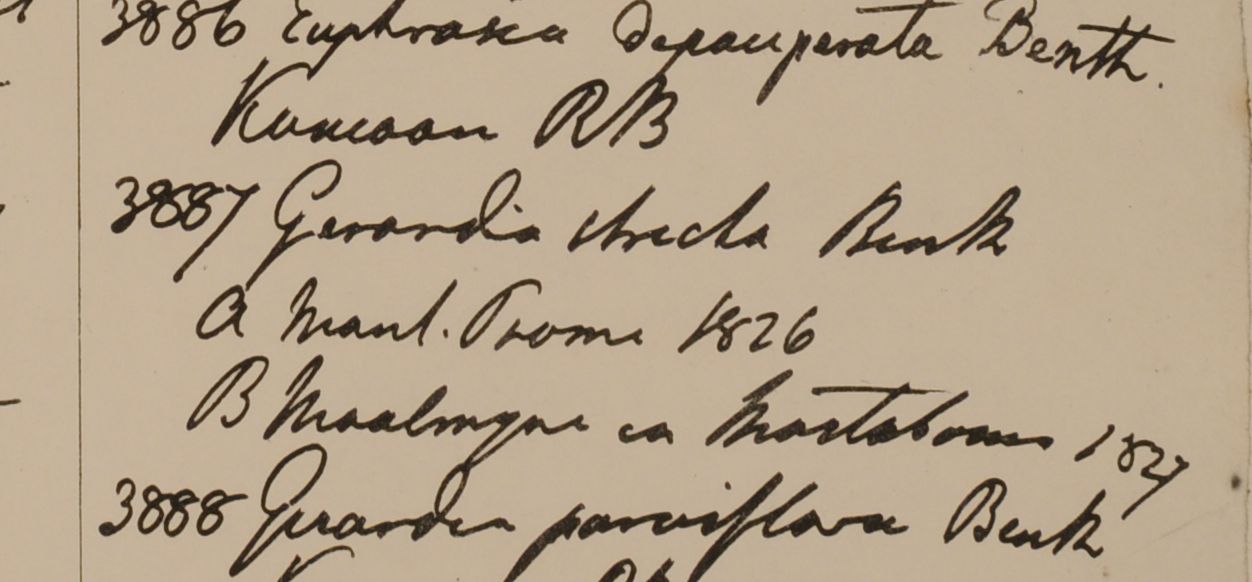 3886 Euphrasia depauperata Benth.
Kumaon RB
3887 Gerardia stricta Benth
A Mont. Prome 1826
B Moalmyne ea Martabania 1827
3888 Gerardia parviflora Benth